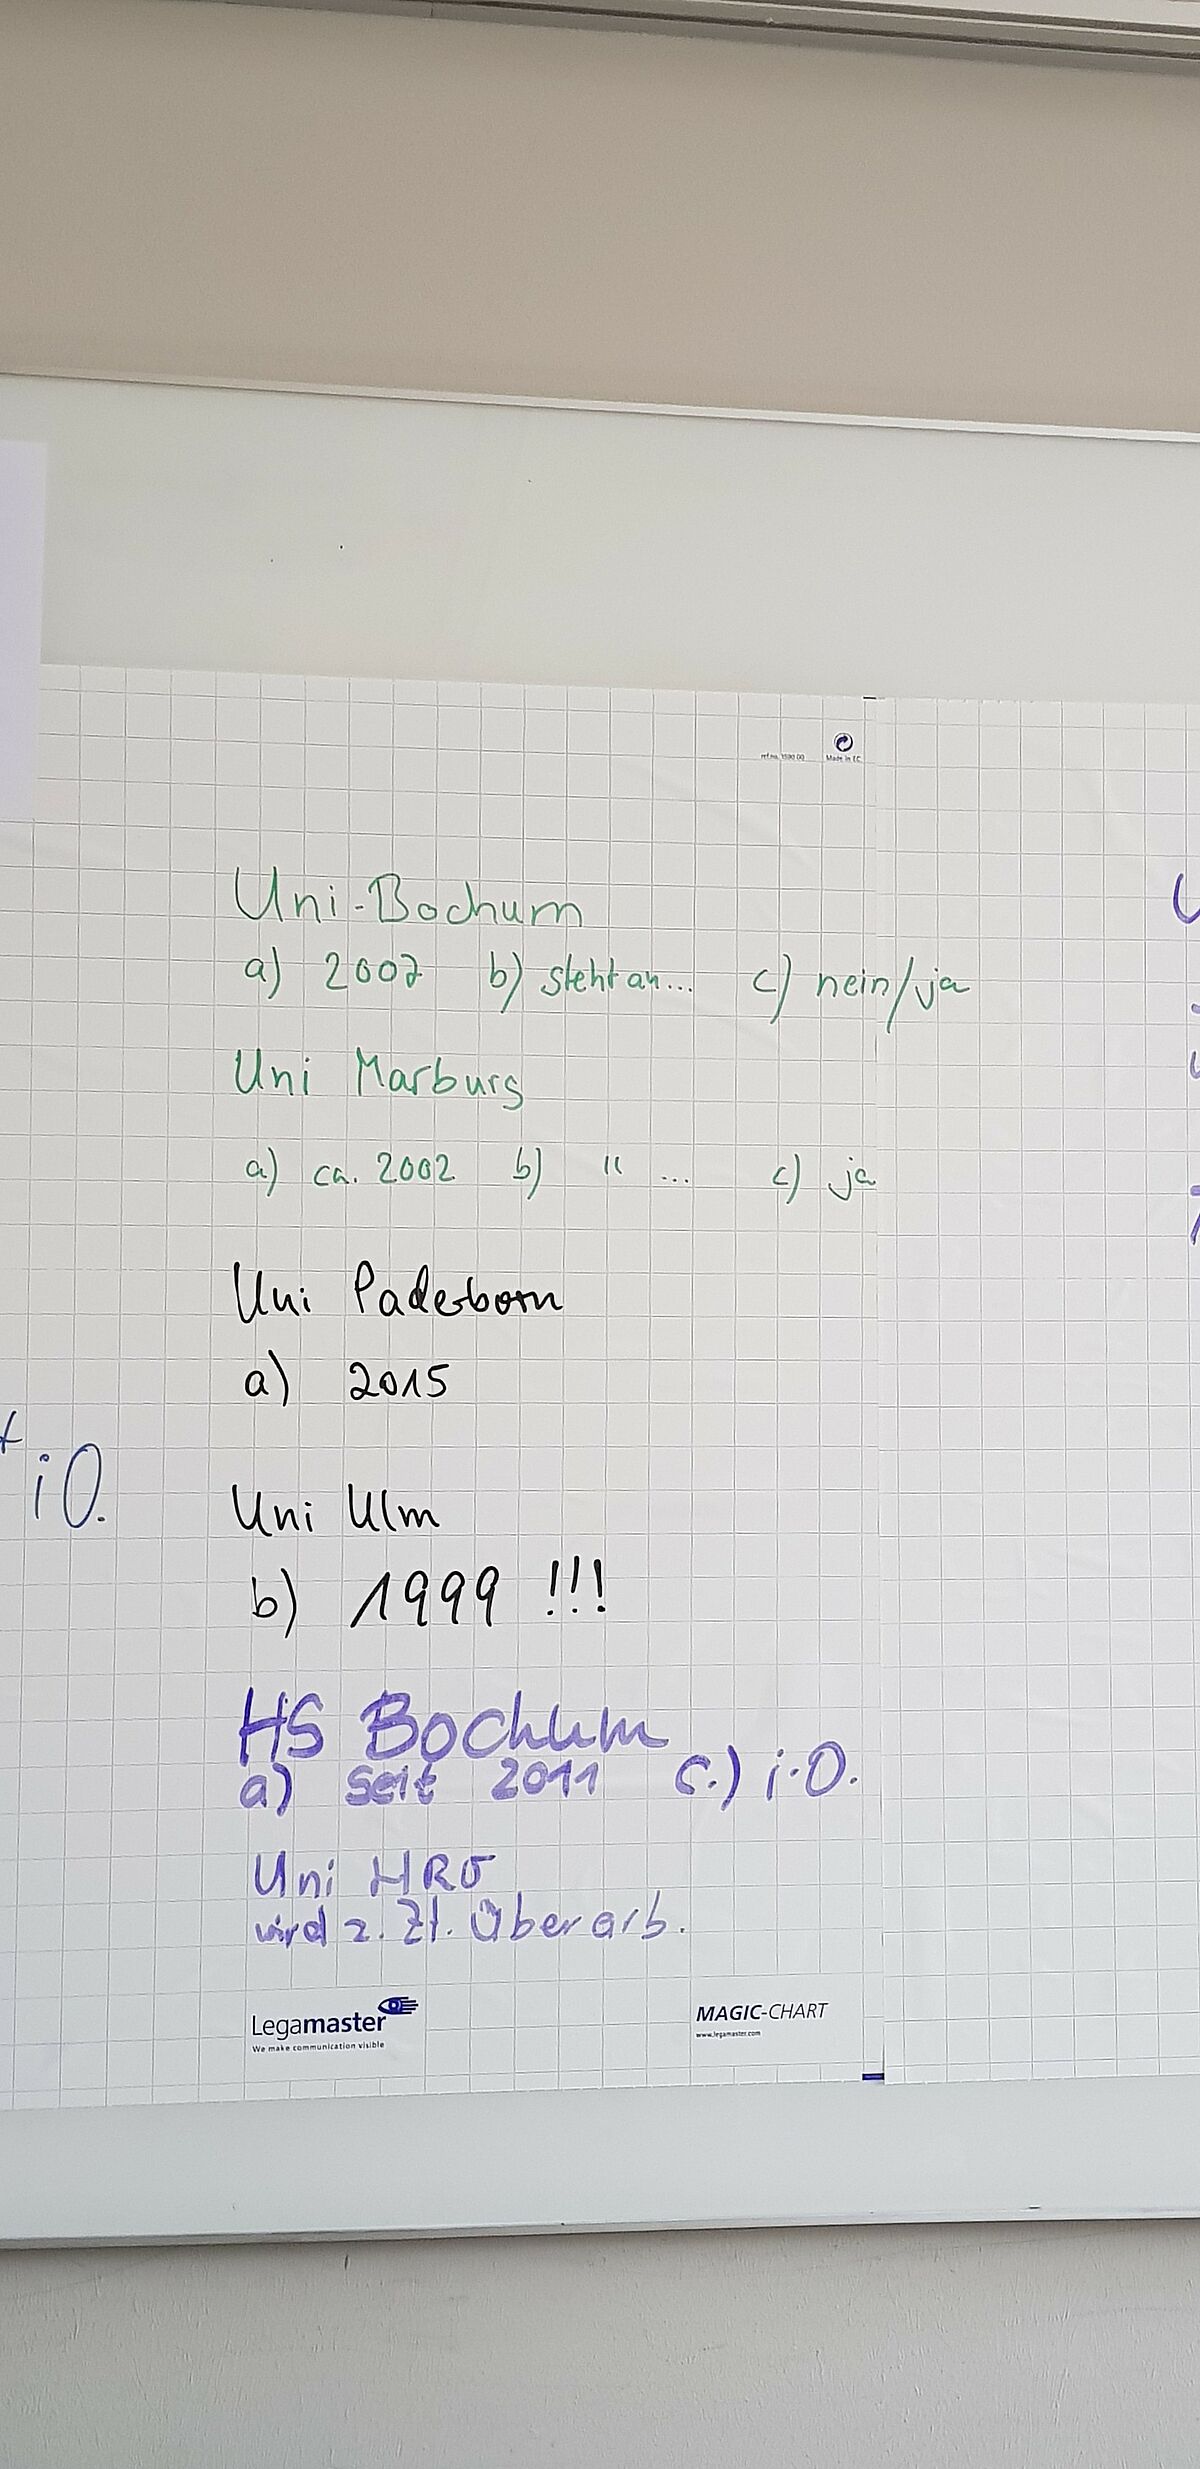 ref.no. 1590 00
Made in EC
Uni-Bochum
a) 2007 b) steht an... c) nein/ja
Uni Marburg
a) ca. 2002 b) " ... c) ja
Uni Paderborn
a) 2015
iO.
Uni Ulm
b) 1999 !!!
HS Bochum
a) seit 2011 c.) i.O.
Uni HRO
wird z. Zt. überarb.
Legamaster
We make communication visible
MAGIC-CHART
www.legamaster.com